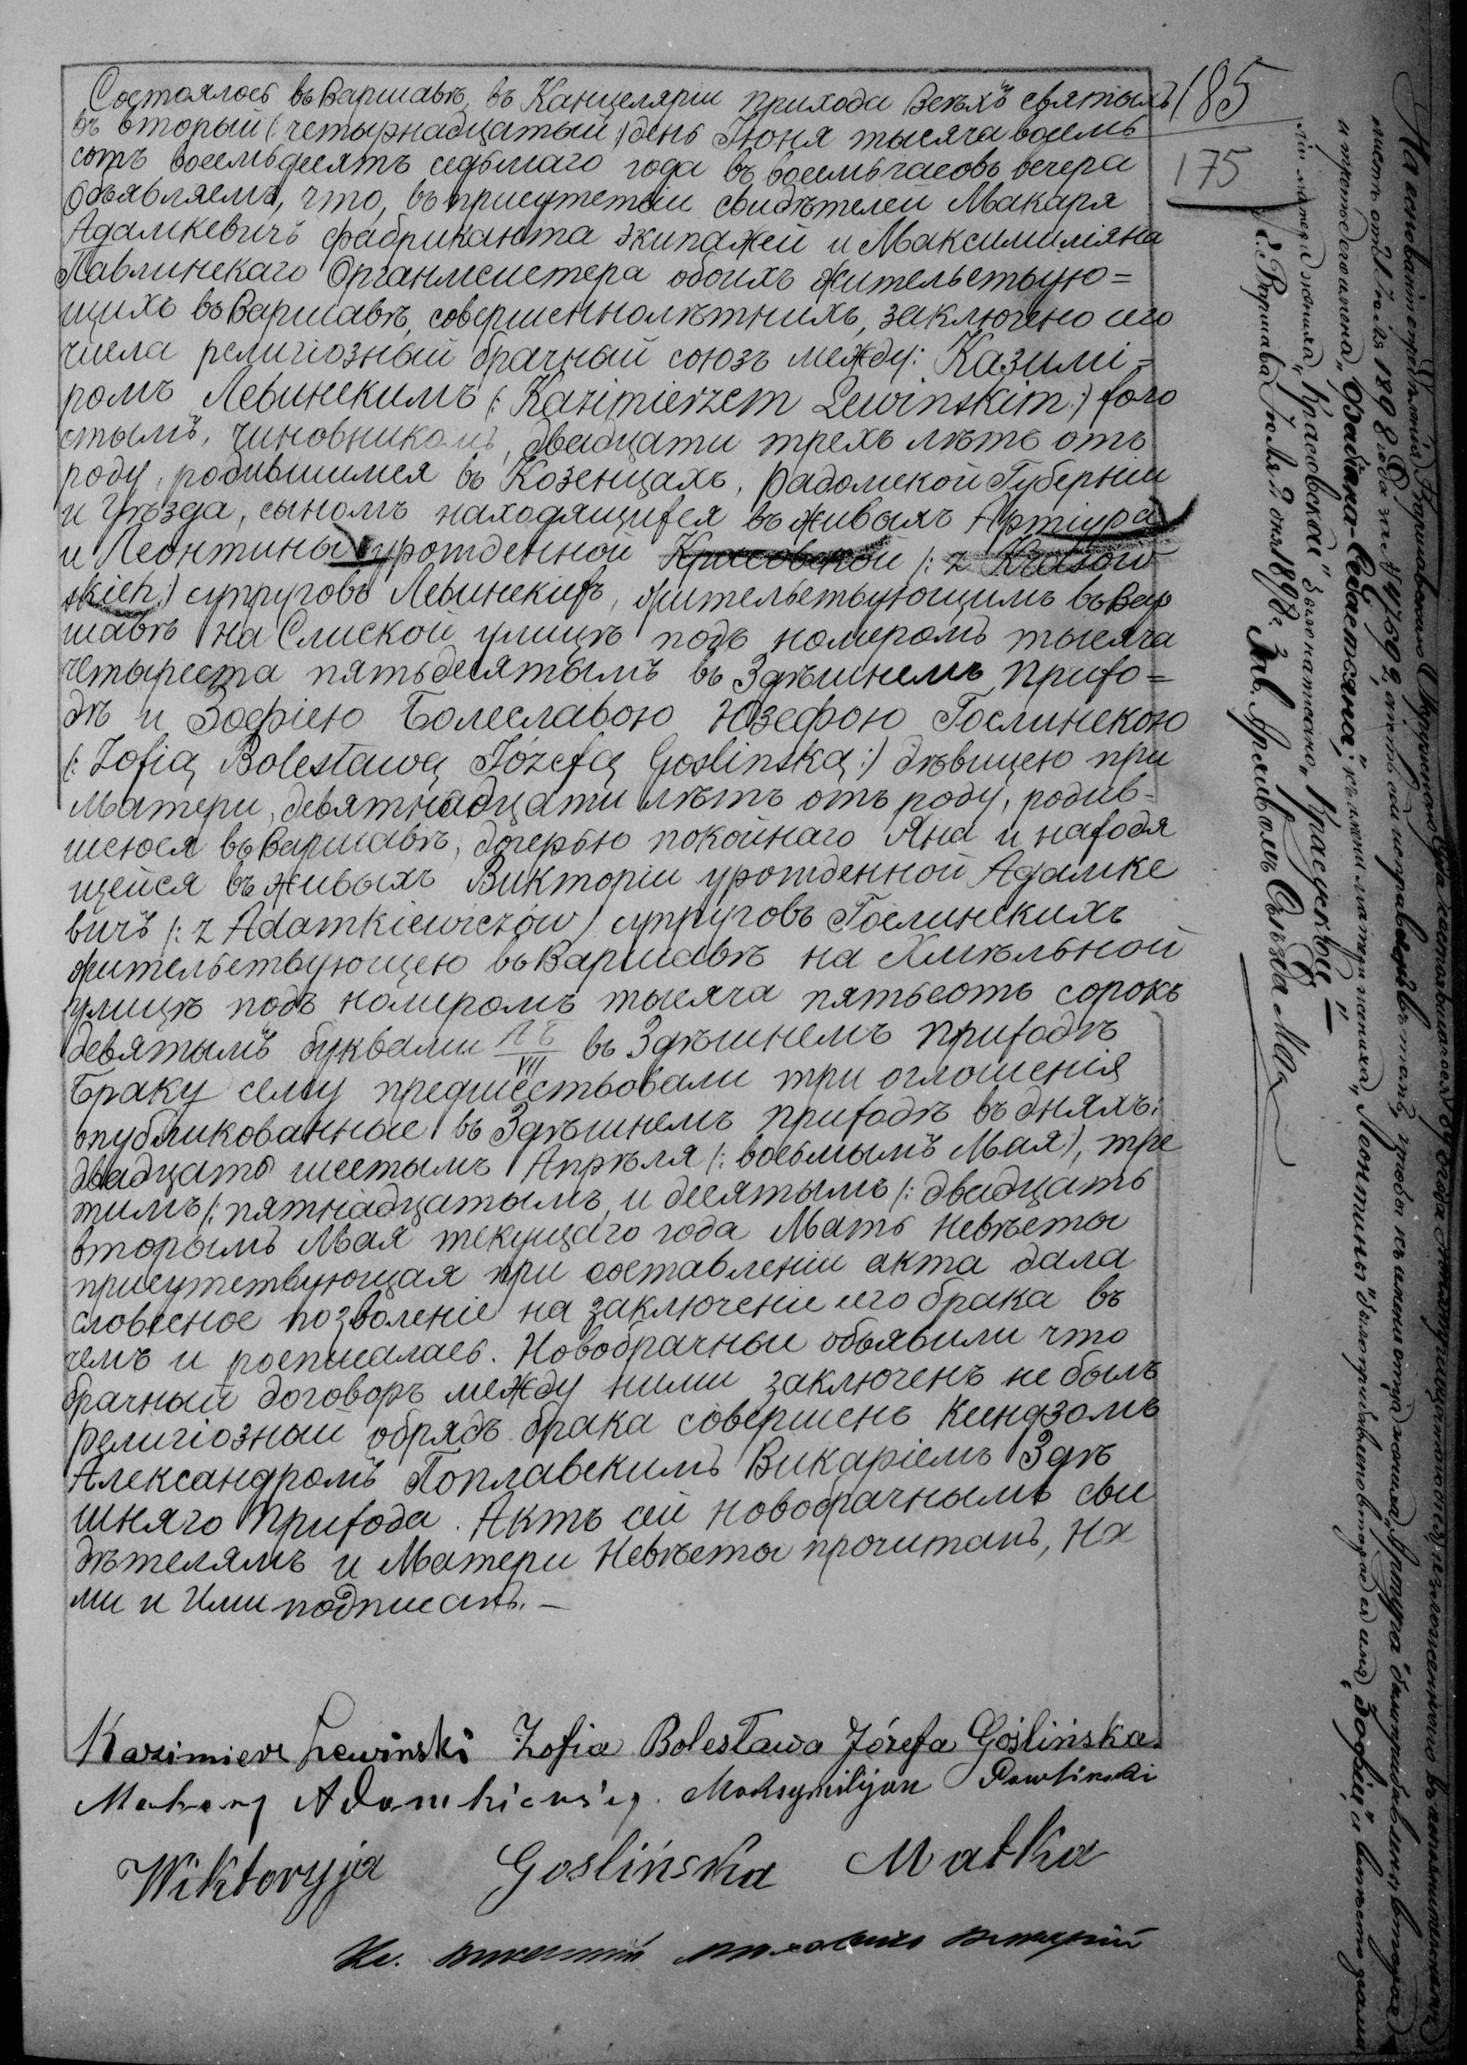 Состоялось въ Варшавѣ, въ Канцеляріи прихода Всѣхъ святыхъ
въ вторый (четырнадцатый) день Іюня тысяча восемь
сотъ восемьдесятъ седьмаго года въ восемь часовъ вечера
Объявляемъ, что, въ присутствіи свидѣтелей Макаря
Адамкевичъ фабриканта экипажей и Максимиліяна
Павлинскаго Органмейстера обоихъ жительствую=
щихъ въ Варшавѣ, совершеннолѣтнихъ, заключено сего
числа религіозный брачный союзъ между: Казимі=
ромъ Левинскимъ (: Kazimierzem Lewinskim :) холо
стымъ, чиновникомъ, двадцати трехъ лѣтъ отъ
роду, родившимся въ Козеницахъ, Радомской Губерніи
и Уѣзда, сыномъ находящихся въ живыхъ Артіура
и Леонтины урожденной Красовской (: z Krasow
skich) супруговъ Левинскихъ, жительствующимъ въ Вар
шавѣ на Слиской улицѣ подъ номеромъ тысяча
четыреста пятьдесятымъ въ Здѣшнемъ Прихо=
дѣ и Зофіею Болеславою Юзефою Гослинскою
(: Zofią Bolesławą Józefą Goslinską :) дѣвицею при
Матери, девятнадцати лѣтъ отъ роду, родив-
шеюся въ Варшавѣ, дочерью покойнаго Яна и находя
щейся въ живыхъ Викторіи урожденной Адамке
вичъ (: z Adamkiewiczów) супруговъ Гослинскихъ
жительствующею въ Варшавѣ на Хмѣльной
улицѣ подъ номеромъ тысяча пятьсотъ сорокъ
девятымъ буквами АБ/VII въ Здѣшнемъ Приходѣ
Браку сему предшествовали три оглошенія
опубликованные въ Здѣшнемъ Приходѣ въ дняхъ:
двадцать шестымъ Апрѣля (: восьмымъ Мая), тре
тимъ (: пятнадцатымъ и десятымъ (: двадцать
вторымъ Мая текущаго года Мать Невѣсты
присутствующая при составленіи акта дала
словесное позволеніе на заключеніе сего брака въ
чемъ и росписалась. Новобрачные объявили что
брачный договоръ между ними заключенъ не былъ
религіозный обрядъ брака совершенъ Ксендзомъ
Александромъ Поплавскимъ Викаріемъ Здѣ
шняго Прихода. Актъ сей новобрачнымъ сви
дѣтелямъ и Матери Невѣсты прочитанъ, На
ми и Ими подписанъ. —
Kazimierz Lewinski Zofia Bolesława Józefa Goślińska
Makary Adamkiewicz. Maksymilijan Pawlinski
Wiktoryja Goslińska Matka
185
175
На основаніи опредѣленія Варшавскаго Окружнаго Суда
1898 года за № 47692, актъ сей исправленъ въ томъ, чтобы къ имени отца жениха „Артура" было прибавлено второе
и третье его имена „Фабіана-Себастьяна"; къ имени матери жениха „Леонтины" было прибавлено второе ея имя „Зофіи" и вмѣсто фами
ліи матери жениха „Красовской" было написано „Красуской". —
г. Варшава Іюля 9 дня 1898 г.